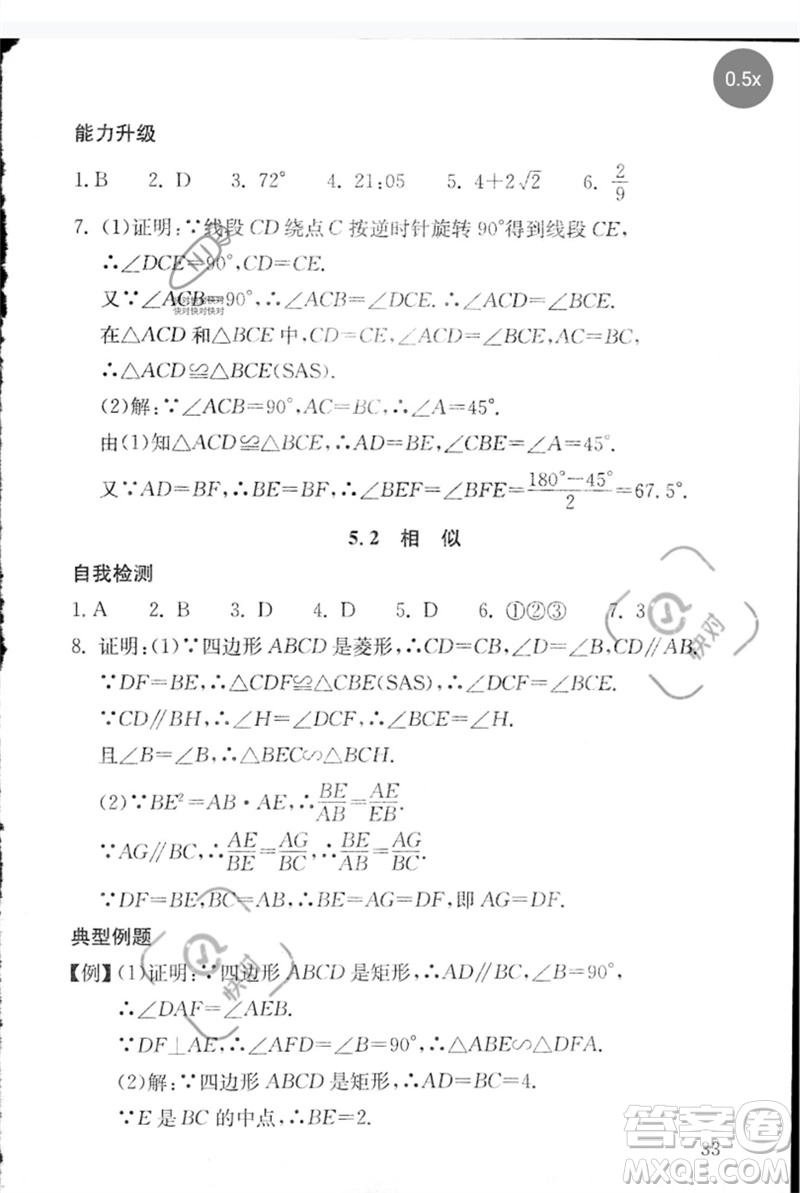 0.5x
能力升级
1. B 2. D 3. 72° 4. 21:05 5. 4+2√2 6. 2/9
7. (1)证明:∵线段 CD 绕点 C 按逆时针旋转 90°得到线段 CE,
∴∠DCE=90°,CD=CE.
又∵∠ACB=90°,∴∠ACB=∠DCE.∴∠ACD=∠BCE.
在△ACD 和△BCE 中,CD=CE,∠ACD=∠BCE,AC=BC,
∴△ACD≌△BCE(SAS).
(2)解:∵∠ACB=90°,AC=BC,∴∠A=45°.
由(1)知△ACD≌△BCE,∴AD=BE,∠CBE=∠A=45°.
又∵AD=BF,∴BE=BF.∴∠BEF=∠BFE=(180°-45°)/2=67.5°.
5.2 相 似
自我检测
1. A 2. B 3. D 4. D 5. D 6. ①②③ 7. 3
8. 证明:(1)∵四边形 ABCD 是菱形,∴CD=CB,CD∥AB.
∵DF=BE,∴△CDF≌△CBE(SAS),∴∠DCF=∠BCE.
∵CD∥BH,∴∠H=∠DCF,∴∠BCE=∠H.
且∠B=∠B,∴△BEC∽△BCH.
(2)∵BE²=AB·AE,∴BE/AB=AE/EB.
∵AG∥BC,∴AE/BE=AG/BC,∴BE/AB=AG/BC.
∵DF=BE,BC=AB,∴BE=AG=DF,即 AG=DF.
典型例题
【例】(1)证明:∵四边形 ABCD 是矩形,∴AD∥BC,∠B=90°,
∴∠DAF=∠AEB.
∵DF⊥AE,∴∠AFD=∠B=90°,∴△ABE∽△DFA.
(2)解:∵四边形 ABCD 是矩形,∴AD=BC=4.
∵E 是 BC 的中点,∴BE=2.
33
快对
快对
答案圈
MXQE.COM